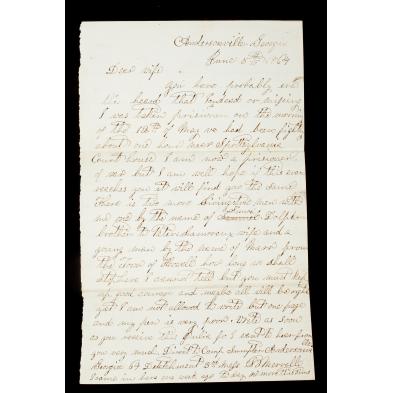 Andersonville Georgia
June 5th 1864
Dear wife
You have probably ere
this heard that
I was taken prisoner on the morning
of the 12th of May we had been
about one hour near Spottsylvania
Court house I am now a prisoner
of war but I am well hope if this ever
reaches you it will find you the same
There is two more Livingston men with
me one by the name of
brother to Peter wife and a
young man by the name of from
the Town of Howell how long we shall
stop here I cannot tell but you must keep
up good courage and maybe all will be right
yet I am not allowed to write but one page
and my pen is very poor. Write as soon
as you receive this for I want to hear from
you very much. Direct to Camp Sumpter Andersonville
Georgia 64 Detachment 3rd Mess
I came in here one week ago to day no more this time